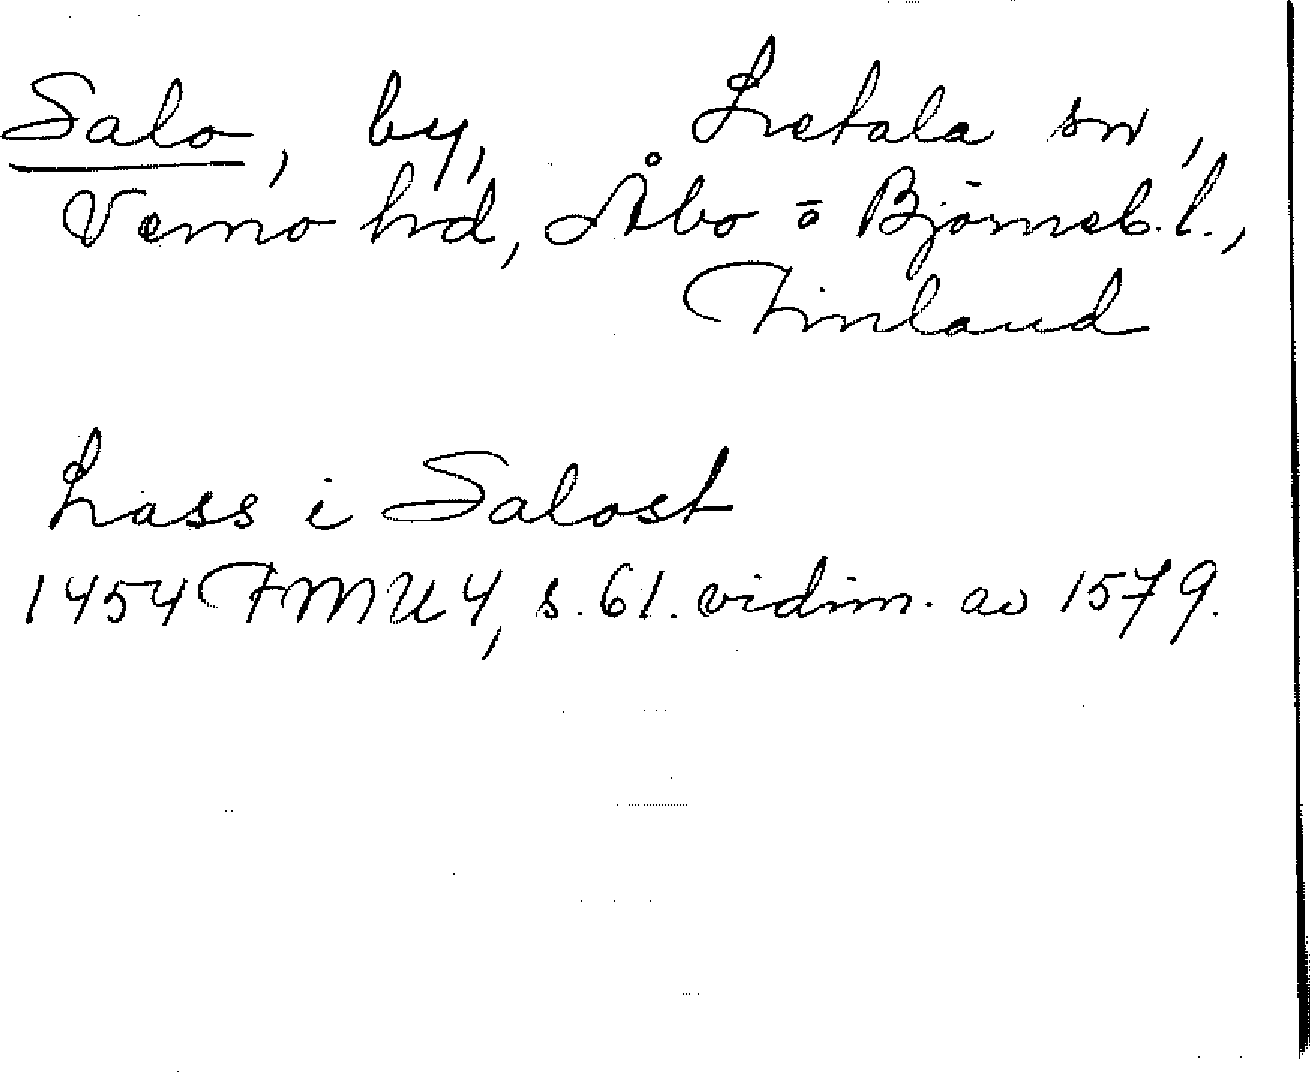 Salo, by, Letala sn,
Vemo hd, Åbo o Björneb. l.,
Finland
Lass i Salost
1454 FMU 4, s. 61. vidim. av 1579.